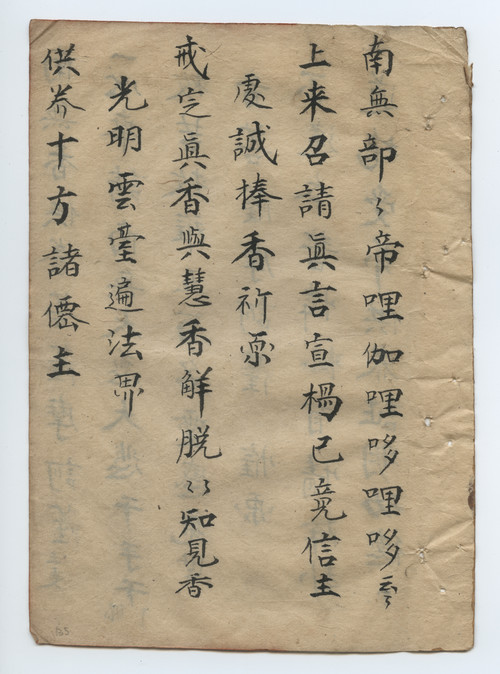 南無部〻帝哩伽哩哆哩哆云云
上来召請眞言宣楊已竟信主
虔誠捧香祈禀
戒定眞香與慧香觧脱〻知見香
光明雲臺遍法界
供养十方諸僊主